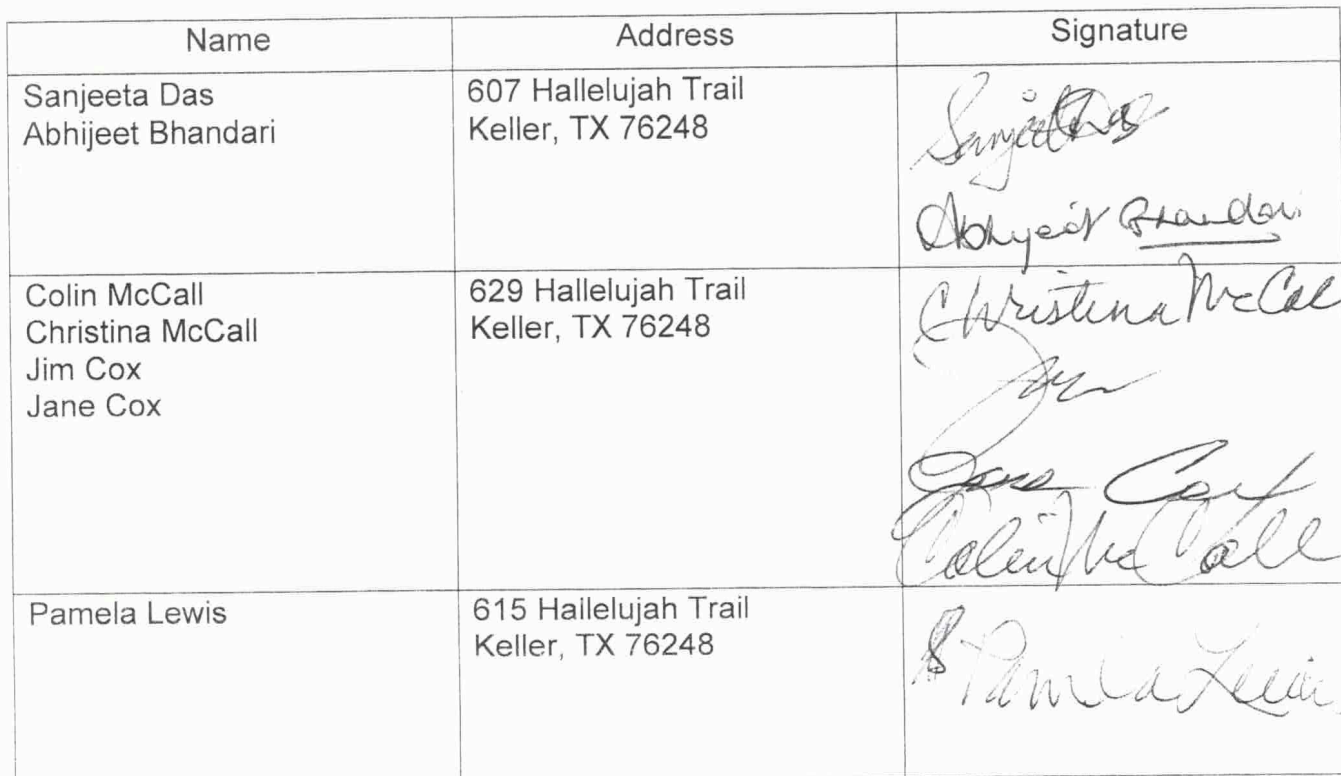 Name Address Signature
Sanjeeta Das
Abhijeet Bhandari
607 Hallelujah Trail
Keller, TX 76248
Sanjeeta Das
Abhijeet Bhandari
Colin McCall
Christina McCall
Jim Cox
Jane Cox
629 Hallelujah Trail
Keller, TX 76248
Christina McCall
Jane Cox
Colin McCall
Pamela Lewis
615 Hallelujah Trail
Keller, TX 76248
Pamela Lewis